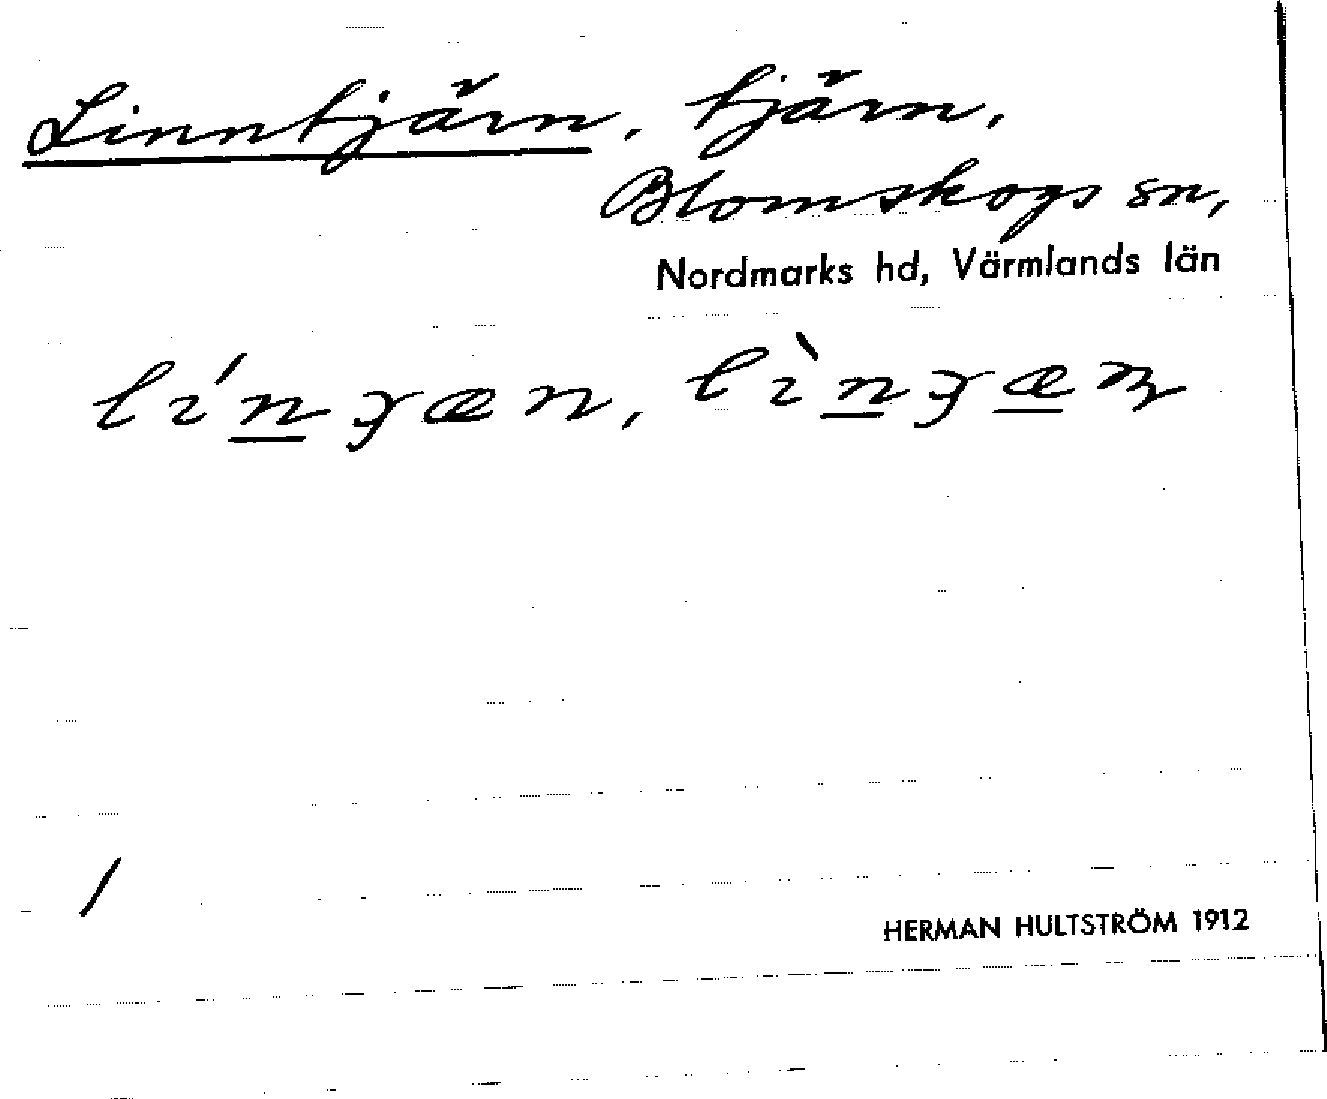 Linntjärn, tjärn,
Blomskogs sn,
Nordmarks hd, Värmlands län
/
HERMAN HULTSTRÖM 1912